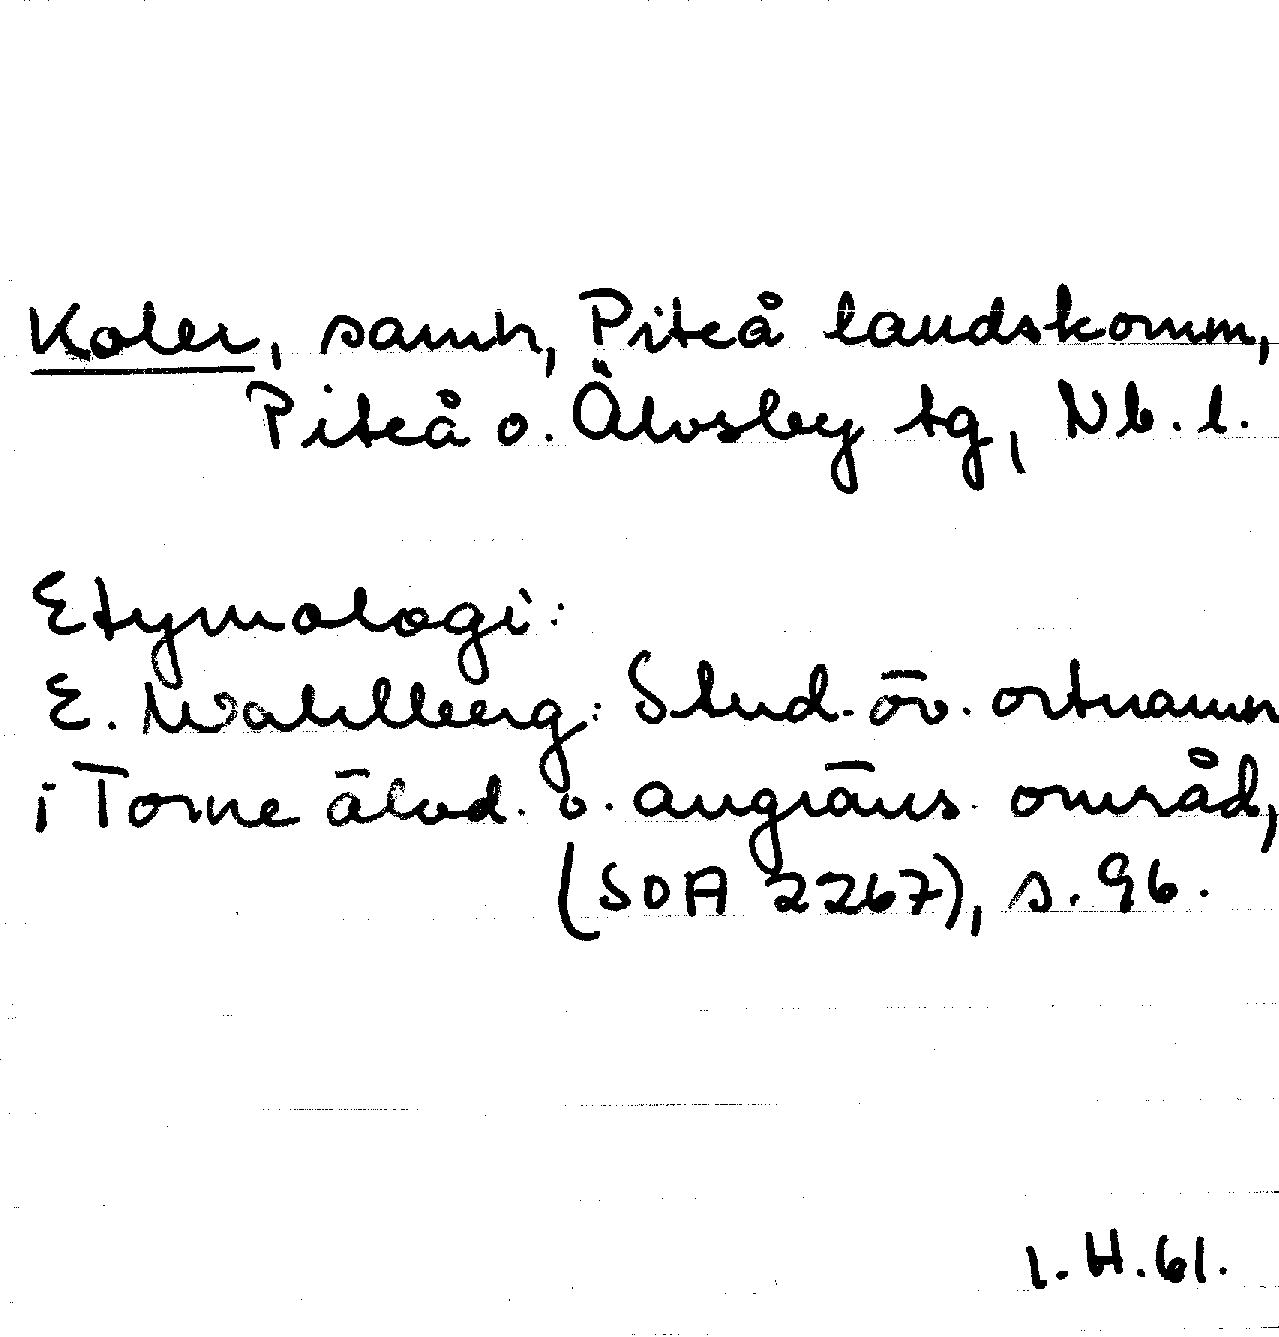 Koler, samh, Piteå landskomm,
Piteå o. Älvsby tg, Nb. l.
Etymologi:
E. Wahlberg: Stud. öv. ortnamn
i Torne älvd. o. angräns. områd,
(SOA 2267), s. 96.
I. H. 61.